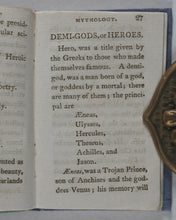 soci-
Heroic
etry.
of
and
and
MYTHOLOGY. 27
DEMI-GODS, or HEROES.
Hero, was a title given by
the Greeks to those who made
themselves famous. A demi-
god, was a man born of a god,
or goddess by a mortal; there
are many of them; the princi-
pal are
Æneas,
Ulysses,
Hercules,
Theseus,
Achilles, and
Jason.
Æneas, was a Trojan Prince,
son of Anchises and the god-
dess Venus; his memory will